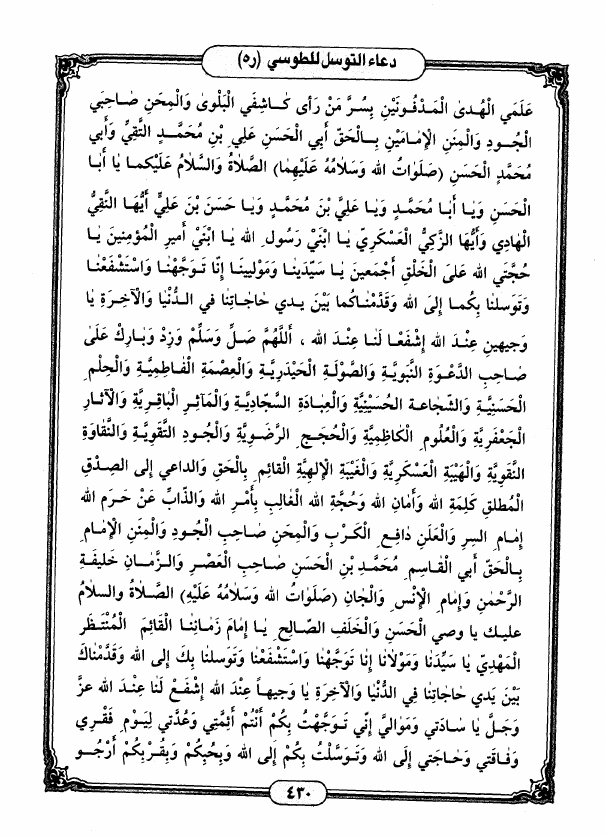 دعاء التوسل للطوسي (ره)
عَلَمَيِ الْهُدىٰ الْمَدْفُونَيْنِ بِسُرَّ مَنْ رَأى كَاشِفَي الْبَلْوىٰ وَالْمِحَنِ صَاحِبَي
الْجُودِ وَالْمِنَنِ الْإِمَامَيْنِ بِالْحَقِّ أَبِي الْحَسَنِ عَلِي بْنِ مُحَمَّدٍ التَّقِيِّ وَأَبي
مُحَمَّدٍ الْحَسَنِ (صَلَوَاتُ الله وَسَلَامُهُ عَلَيْهِما) الصَّلاةُ وَالسَّلامُ عَلَيْكما يَا أَبَا
الْحَسَنِ وَيَا أَبَا مُحَمَّدٍ وَيَا عَلِيَّ بْنَ مُحَمَّدٍ وَيَا حَسَنَ بْنَ عَلِيٍّ أَيُّهَا النَّقِيُّ
الْهَادِي وَأَيُّهَا الزَّكِيُّ الْعَسْكَرِيُّ يَا ابْنَيْ رَسُولِ الله يَا ابْنَيْ أَمِيرِ الْمُؤْمِنِينَ يَا
حُجَّتَي الله عَلىَ الْخَلْقِ أَجْمَعِينَ يَا سَيِّدَيْنَا وَمَوْلَيَيْنَا إِنَّا تَوَجَّهْنَا وَاسْتَشْفَعْنَا
وَتَوَسلنَا بِكُما إِلَى الله وَقَدَّمْنَاكُما بَيْنَ يَدي حَاجَاتِنَا في الدُّنْيَا وَالْآخِرَةِ يَا
وَجيهين عِنْدَ الله إِشْفَعْا لَنَا عِنْدَ الله ، أَللَّهُمَّ صَلِّ وَسَلِّمْ وَزِدْ وَبَارِكْ عَلىَ
صَاحِبِ الدَّعْوَةِ النَّبَوِيَّةِ وَالصَّوْلَةِ الْحَيْدَرِيَّةِ وَالْعِصْمَةِ الْفَاطِمِيَّةِ وَالْحِلْمِ
الْحَسَنِيَّةِ وَالشَّجَاعَةِ الْحُسَيْنِيَّةِ وَالْعِبَادَةِ السَّجَادِيَّةِ وَالْمَآثِرِ الْبَاقِرِيَّةِ وَالْآثَارِ
الْجَعْفَرِيَّةِ وَالْعُلُومِ الْكَاظِمِيَّةِ وَالْحُجَجِ الرَّضَوِيَّةِ وَالْجُودِ التَّقَوِيَّةِ وَالنَّقَاوَةِ
النَّقَوِيَّةِ وَالْهَيْبَةِ الْعَسْكَرِيَّةِ وَالْغَيْبَةِ الْإِلٰهِيَّةِ الْقَائِمِ بِالْحَقِ وَالداعي إِلى الصِدْقِ
الْمُطلقِ كَلِمَةِ الله وَأَمَانِ الله وَحُجَّةِ الله الْغَالِبِ بِأَمْرِ الله وَالذَّابِّ عَنْ حَرَمِ الله
إِمَامِ السِرِ وَالْعَلَنِ دَافِعِ الْكَرْبِ وَالْمِحَنِ صَاحِبِ الْجُودِ وَالْمِنَنِ الْإِمَامِ
بِالْحَقِّ أَبِي الْقَاسِمِ مُحَمَّدِ بْنِ الْحَسَنِ صَاحِبِ الْعَصْرِ وَالزَّمَانِ خَلِيفَةِ
الرَّحْمٰنِ وَإِمَامِ الْإِنْسِ وَالْجَانِ (صَلَوَاتُ الله وَسَلَامُهُ عَلَيْهِ) الصَّلَاةُ والسلامُ
عليك يَا وصي الْحَسَنِ وَالْخَلَفِ الصَّالِحِ يَا إِمَامَ زَمَانِنَا الْقَائِمَ الْمُنْتَظَر
الْمَهْدِيّ يَا سَيِّدَنَا وَمَوْلَانَا إِنَا تَوَجَّهْنَا وَاسْتَشْفَعْنَا وَتَوَسلنَا بِكَ إِلى الله وَقَدَّمْنَاكَ
بَيْنَ يَدي حَاجَاتِنَا فِي الدُّنْيَا وَالْآخِرَةِ يَا وَجيهاً عِنْدَ الله إِشْفَعْ لَنَا عِنْدَ الله عزَّ
وَجَلَّ يَا سَادَتي وَمَوَاليَّ إِنِّي تَوَجَّهْتُ بِكُمْ أَنْتُمْ أَئِمَّتِي وَعُدَّتي لِيَوْمِ فَقْرِي
وَفَاقَتي وَحَاجَتي إِلَى الله وَتَوَسَّلْتُ بِكُمْ إِلَى الله وَبِحُبِكُمْ وَبِقُرْبِكُمْ أَرْجُو
٤٣٠